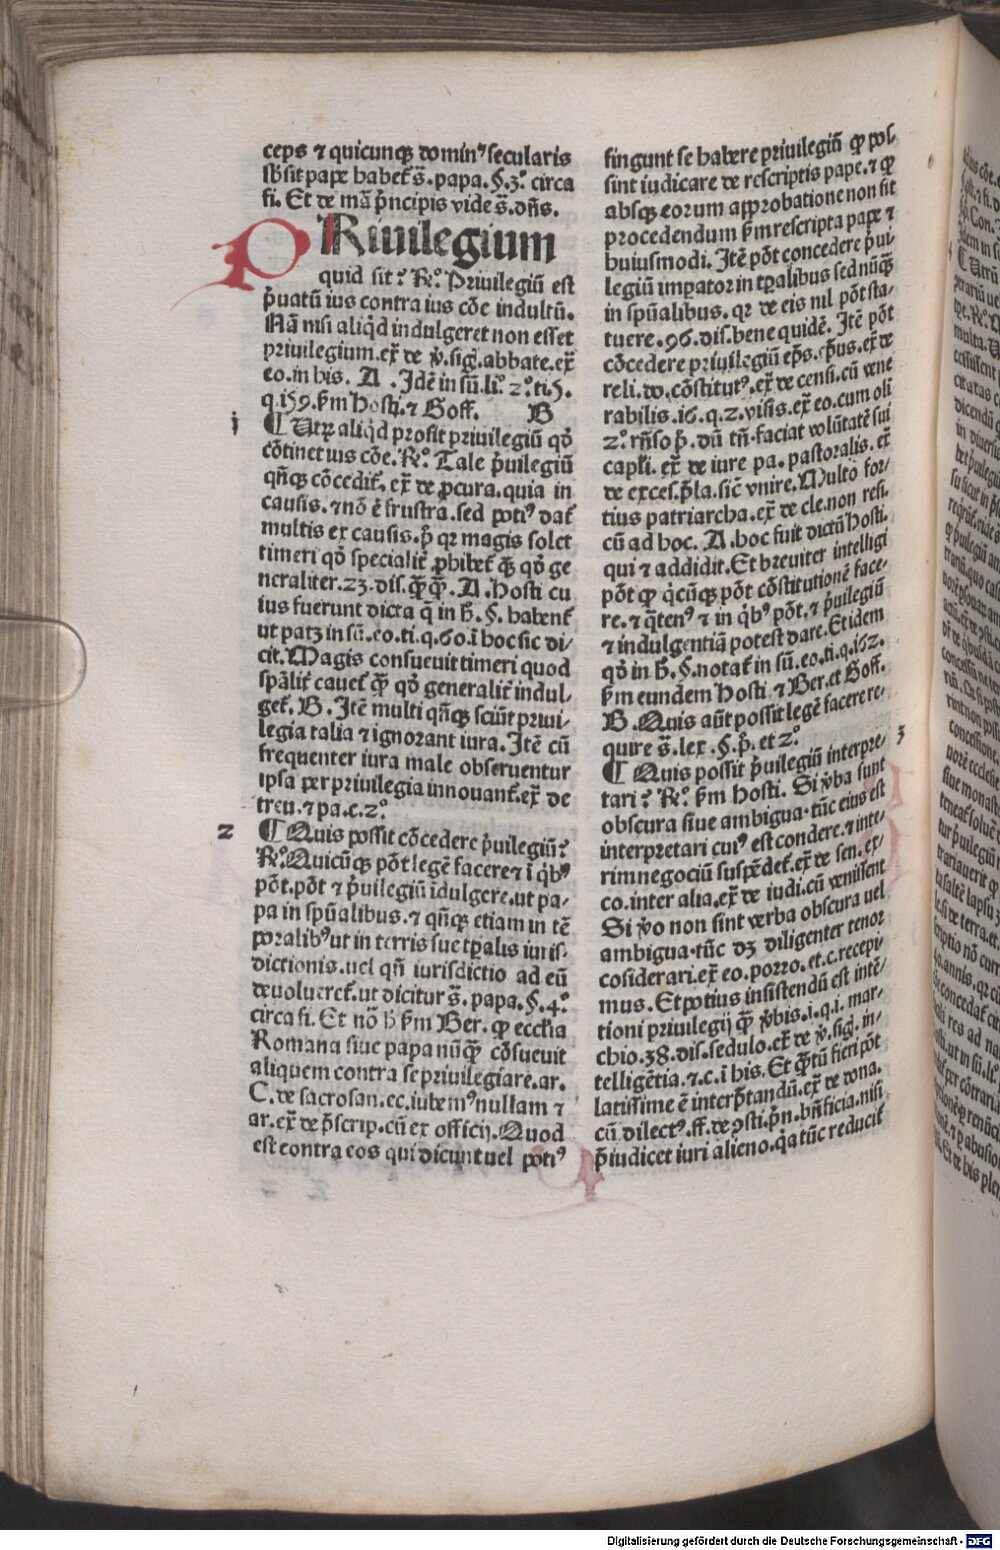 ceps ⁊ quicunqꝫ dominꝰ secularis
sb̄sit pape habet̄ s̄. papa. §.3.º circa
fi. Et de mā p̄ncipis vide s̄. dn̄s.
PRiuilegium
quid sit? Rº. Priuilegiū est
p̄uatū ius contra ius cōe indultū.
Nā nisi aliqd̄ indulgeret non esset
priuilegium.ex̄ de v̄.sig.abbate.ex̄
eo.in his. A. Idē in sū.li.º 2.º ti.5.
q.159.s̄m Hosti.⁊ Goff. B
i
¶ Utrꝫ aliqd̄ prosit priuilegiū qō
cōtinet ius cōe. Rº. Tale p̄uilegiū
qn̄qꝫ cōcedit̄. ex̄ de ꝓcura. quia in
causis. ⁊ nō ē frustra. sed potiꝰ dat̄
multis ex causis. p̄ qꝛ magis solet
timeri qō specialit̄ ꝓhibet̄ qꝫ qō ge
neraliter.23.dis.qꝫqꝫ. A. Hosti cu
ius fuerunt dicta q̄ in h̄. §. habent̄
ut patꝫ in sū.eo.ti.q.60.ī hoc sic di
cit. Magis consueuit timeri quod
spālit̄ cauet̄ qꝫ qō generalit̄ indul-
get̄. B. Itē multi qn̄qꝫ sciūt priui-
legia talia ⁊ ignorant iura. Itē cū
frequenter iura male obseruentur
ipsa per priuilegia innouant̄.ex̄ de
treu.⁊ pa.c.2.º
2
¶ Quis possit cōcedere p̄uilegiū?
Rº. Quicūqꝫ pōt legē facere ⁊ ī qb̄ꝰ
pōt. pōt ⁊ p̄uilegiū īdulgere. ut pa-
pa in spūalibus. ⁊ qn̄qꝫ etiam in tē
poralibꝰ ut in terris sue tp̄alis iuris-
dictionis. uel qn̄ iurisdictio ad eū
deuolueret̄. ut dicitur s̄. papa. §.4.º
circa fi. Et nō h̄ s̄m Ber. ꝙ ecclīa
Romana siue papa nūqꝫ cōsueuit
aliquem contra se priuilegiare.ar.
C. de sacrosan.ec.iubemꝰ nullam ⁊
ar.ex̄ de p̄scrip.cū ex officij. Quod
est contra eos qui dicunt uel potiꝰ
fingunt se habere priuilegiū ꝙ pos-
sint iudicare de rescriptis pape. ⁊ ꝙ
absqꝫ eorum approbatione non sit
procedendum s̄m rescripta pape ⁊
huiusmodi. Itē pōt concedere p̄ui
legiū imꝑator in tp̄alibus sed nūqꝫ
in spūalibus. qꝛ de eis nil pōt sta-
tuere.96.dis.bene quidē. Itē pōt
cōcedere priuilegiū ep̄s. ex̄ de
reli.do.cōstitutꝰ.ex̄ de censi.cū vene
rabilis.16.q.2.visis.ex̄ eo.cum olī
2.º rn̄so p̄. dū tn̄ faciat volūtatē sui
capl̄i. ex̄ de iure pa. pastoralis. ex̄
de exces.p̄la.sic̄ vnire. Multo for-
tius patriarcha.ex̄ de cle.non resi.
cū ad hoc. A. hoc fuit dictū Hosti.
qui ⁊ addidit. Et breuiter intelligi
pōt ꝙ qcūqꝫ pōt cōstitutionē face-
re. ⁊ q̄tenꝰ ⁊ in qb̄ꝰ pōt. ⁊ p̄uilegiū
⁊ indulgentiā potest dare. Et idem
qō in h̄. §. notat̄ in sū.eo.ti.q.162.
s̄m eundem Hosti ⁊ Ber. et Goff.
B. Quis aūt possit legē facere re-
quire s̄. lex. §. p̄. et 2.º
3
¶ Quis possit p̄uilegiū interpre-
tari? Rº. s̄m Hosti. Si v̄ba sunt
obscura siue ambigua. tūc eius est
interpretari cuiꝰ est condere. ⁊ inte-
rim negociū suspēdet̄.ex̄ de sen.ex-
co.inter alia.ex̄ de iudi.cū venissent
Si v̄o non sint verba obscura uel
ambigua. tūc dꝫ diligenter tenor
cōsiderari.ex̄ eo.porro.et.c.recepi-
mus. Et potius insistendū est intē-
tioni priuilegij qꝫ v̄bis.i.q.i.mar-
chio.38.dis.sedulo.ex̄ de v̄.sig.in-
telligētia.⁊.c.ī his. Et qꝫtū fieri pōt
latissime ē interp̄tandū.ex̄ de dona.
cū dilectꝰ.ff.de ꝯsti.p̄n.bn̄ficia.nisi
p̄iudicet iuri alieno. qꝛ tūc reducit̄
Digitalisierung gefördert durch die Deutsche Forschungsgemeinschaft - DFG